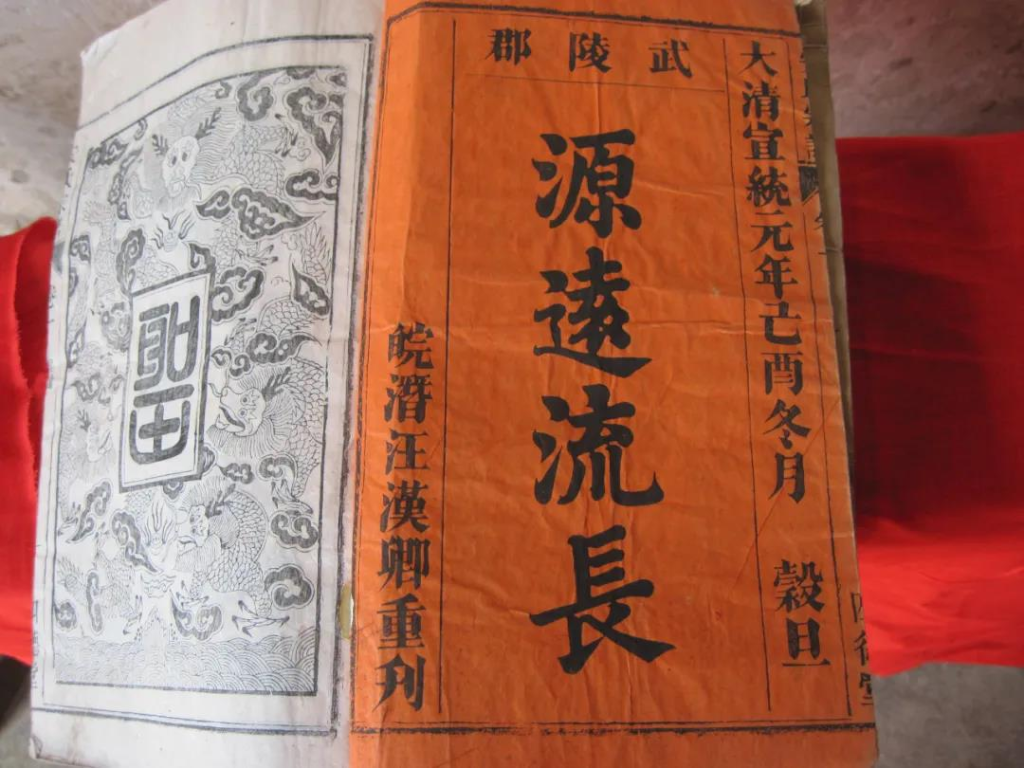 武陵郡
大清宣統元年己酉冬月 穀旦
源遠流長
皖潛汪漢卿重刋